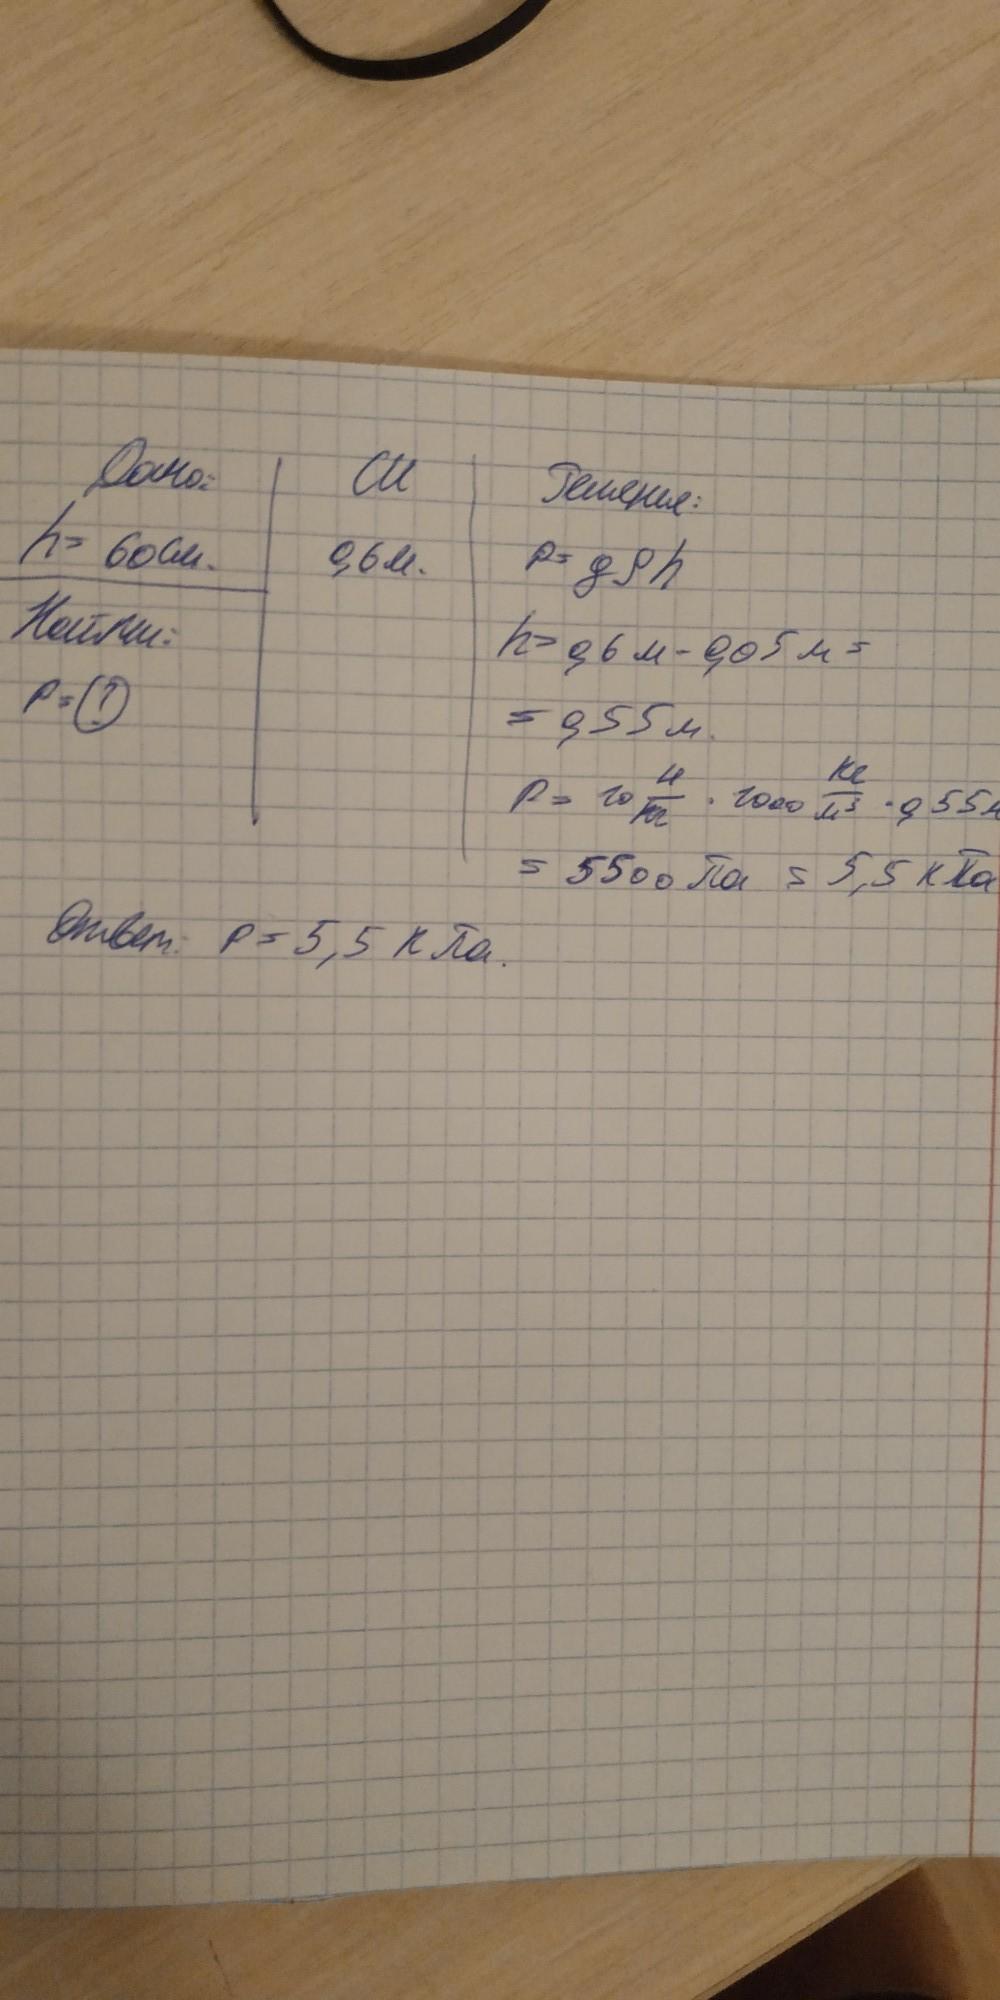 Дано:
h= 60см.
Найти:
P= ?
СИ
0,6м.
Решение:
P= gρh
h= 0,6 м - 0,05 м =
= 0,55 м.
P= 10 Н/кг · 1000 кг/м³ · 0,55м
= 5500 Па = 5,5 кПа
Ответ: P= 5,5 кПа.